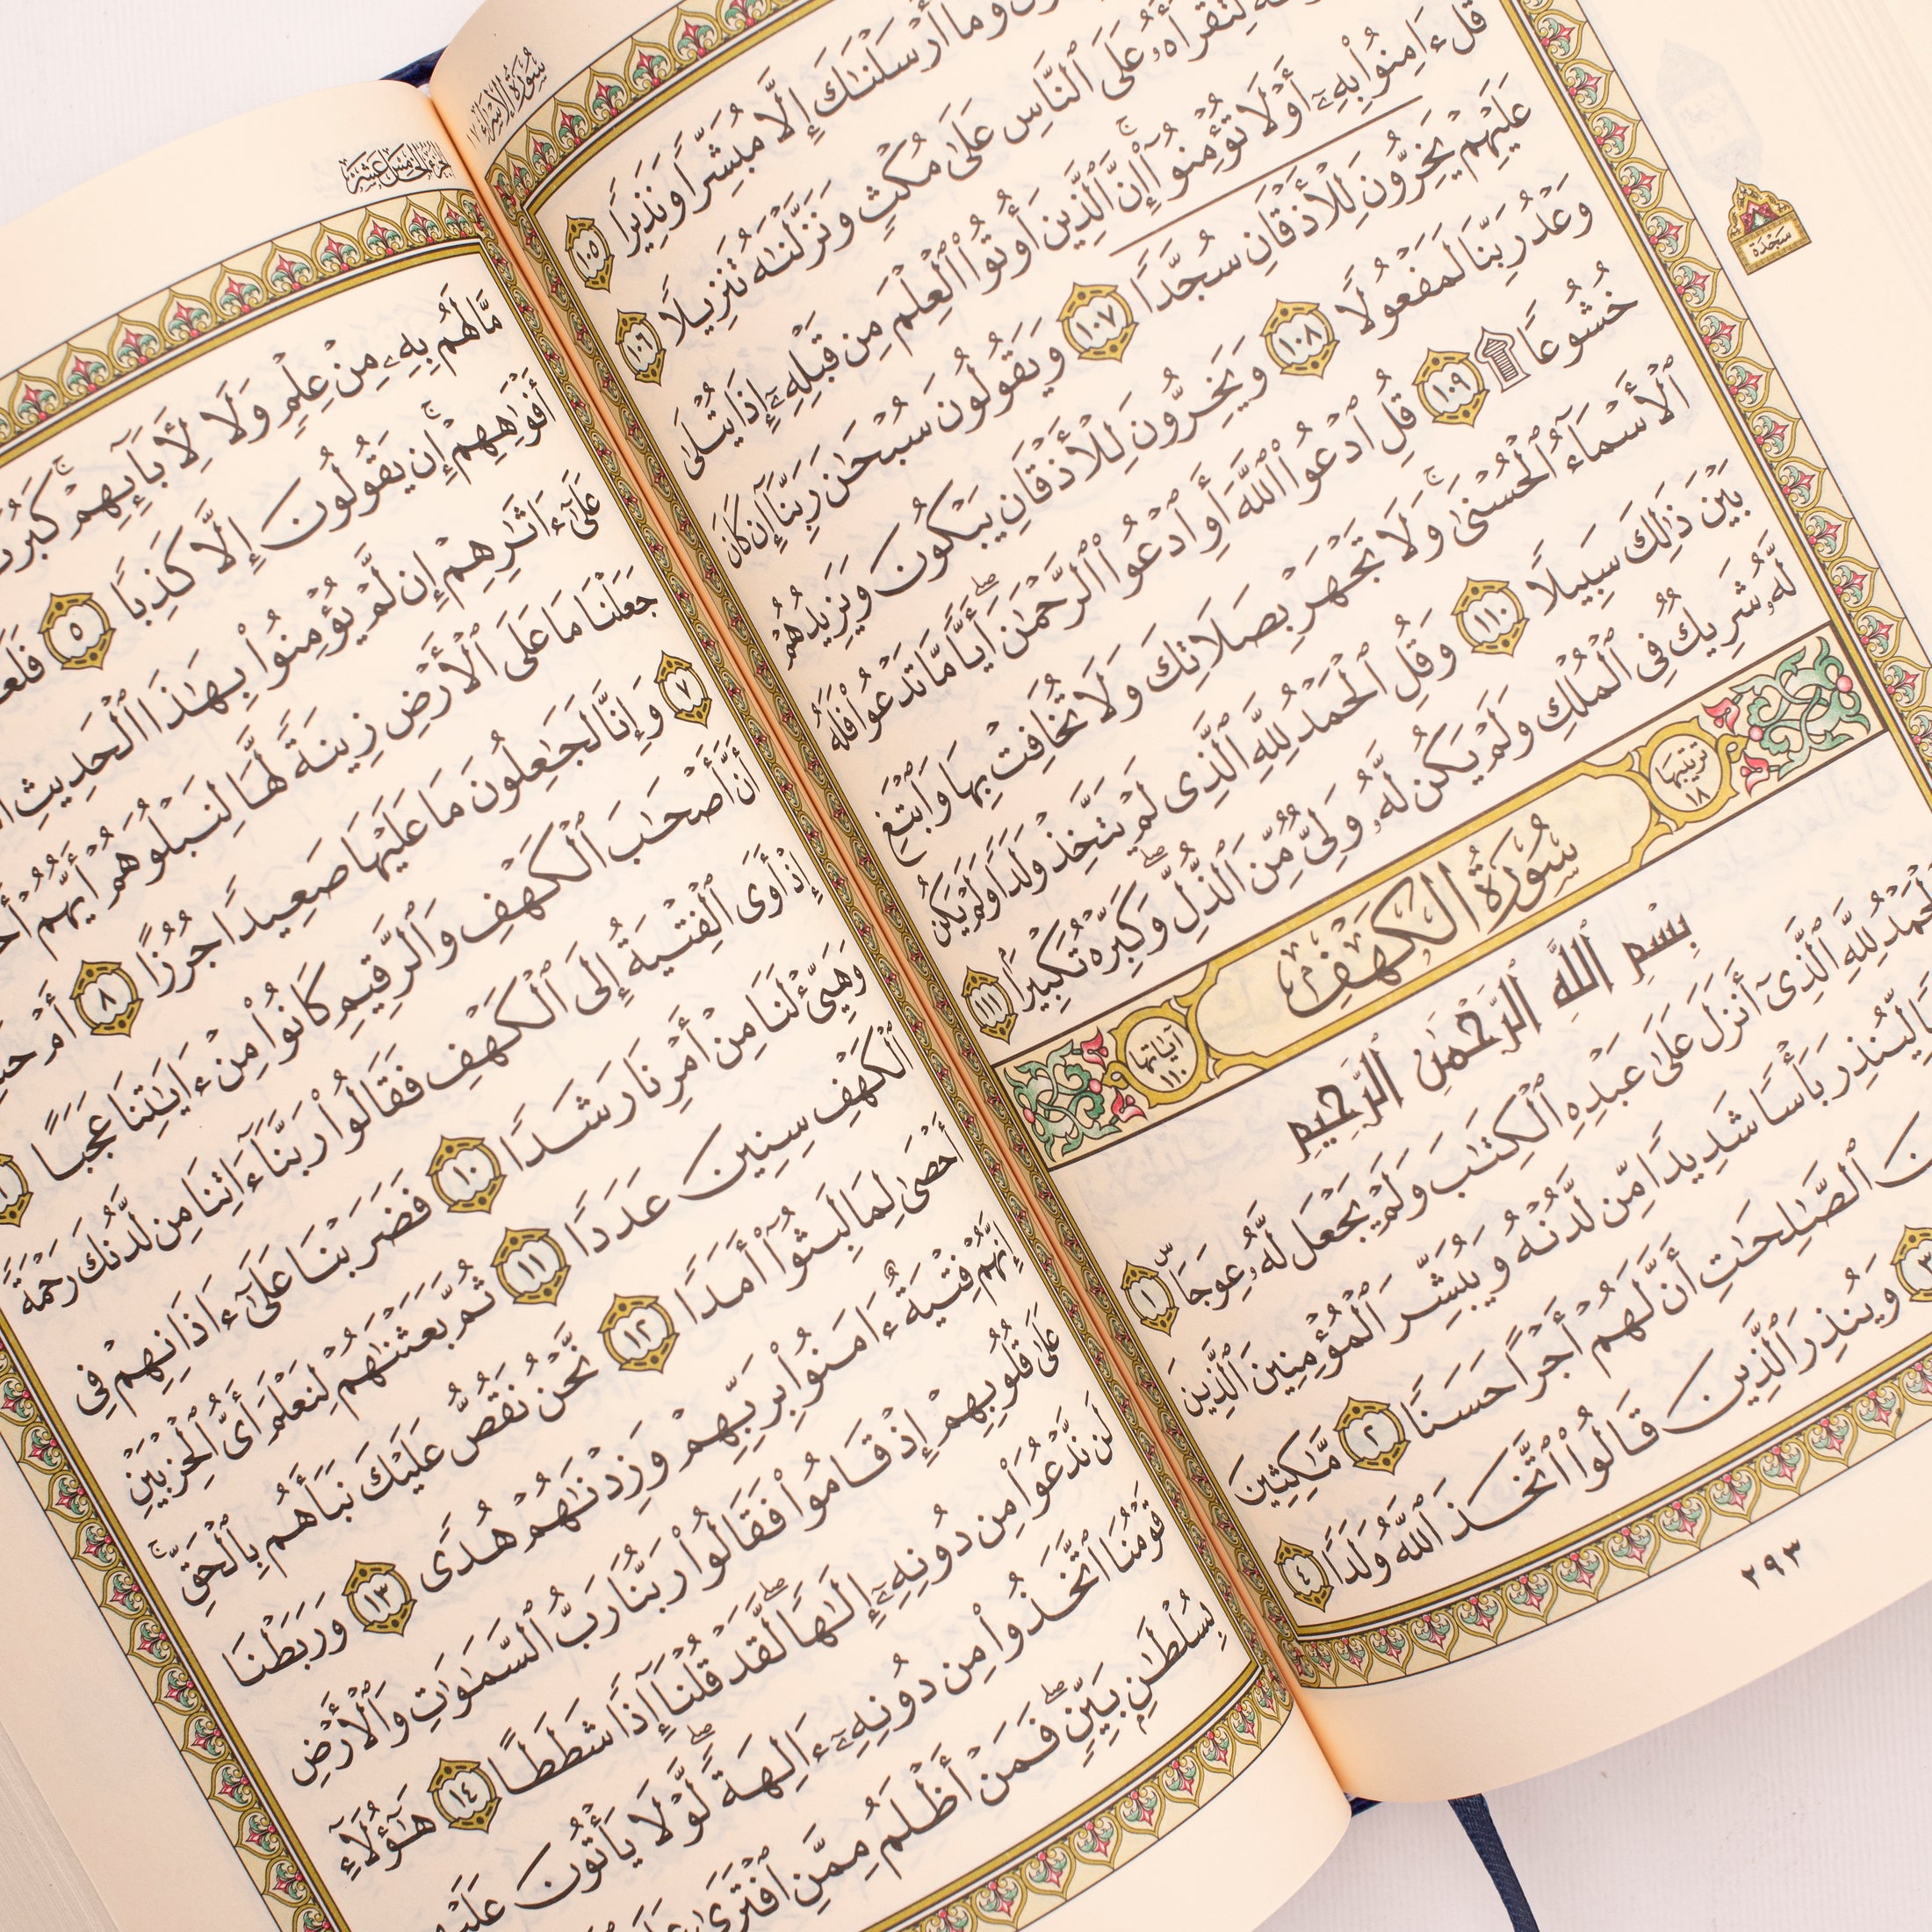 سُورَةُ الإِسْرَاءِ ١٧
وَمَا أَرْسَلْنَٰكَ إِلَّا مُبَشِّرًا وَنَذِيرًا ١٠٥
لِتَقْرَأَهُۥ عَلَى ٱلنَّاسِ عَلَىٰ مُكْثٍ وَنَزَّلْنَٰهُ تَنزِيلًا ١٠٦
قُلْ ءَامِنُوا۟ بِهِۦٓ أَوْ لَا تُؤْمِنُوٓا۟ ۚ إِنَّ ٱلَّذِينَ أُوتُوا۟ ٱلْعِلْمَ مِن قَبْلِهِۦٓ إِذَا يُتْلَىٰ
عَلَيْهِمْ يَخِرُّونَ لِلْأَذْقَانِ سُجَّدًا ١٠٧ وَيَقُولُونَ سُبْحَٰنَ رَبِّنَآ إِن كَانَ
وَعْدُ رَبِّنَا لَمَفْعُولًا ١٠٨ وَيَخِرُّونَ لِلْأَذْقَانِ يَبْكُونَ وَيَزِيدُهُمْ
خُشُوعًا ۩ ١٠٩ قُلِ ٱدْعُوا۟ ٱللَّهَ أَوِ ٱدْعُوا۟ ٱلرَّحْمَٰنَ ۖ أَيًّا مَّا تَدْعُوا۟ فَلَهُ
ٱلْأَسْمَآءُ ٱلْحُسْنَىٰ ۚ وَلَا تَجْهَرْ بِصَلَاتِكَ وَلَا تُخَافِتْ بِهَا وَٱبْتَغِ
بَيْنَ ذَٰلِكَ سَبِيلًا ١١٠ وَقُلِ ٱلْحَمْدُ لِلَّهِ ٱلَّذِى لَمْ يَتَّخِذْ وَلَدًا وَلَمْ يَكُن
لَّهُۥ شَرِيكٌ فِى ٱلْمُلْكِ وَلَمْ يَكُن لَّهُۥ وَلِىٌّ مِّنَ ٱلذُّلِّ ۖ وَكَبِّرْهُ تَكْبِيرًۢا ١١١
سَجْدَة
ترتيبها ١٨
سُورَةُ الكَهْفِ
آياتها ١١٠
بِسْمِ ٱللَّهِ ٱلرَّحْمَٰنِ ٱلرَّحِيمِ
ٱلْحَمْدُ لِلَّهِ ٱلَّذِىٓ أَنزَلَ عَلَىٰ عَبْدِهِ ٱلْكِتَٰبَ وَلَمْ يَجْعَل لَّهُۥ عِوَجَا ۜ ١
لِّيُنذِرَ بَأْسًا شَدِيدًا مِّن لَّدُنْهُ وَيُبَشِّرَ ٱلْمُؤْمِنِينَ ٱلَّذِينَ
ٱلصَّٰلِحَٰتِ أَنَّ لَهُمْ أَجْرًا حَسَنًا ٢ مَّٰكِثِينَ
٣ وَيُنذِرَ ٱلَّذِينَ قَالُوا۟ ٱتَّخَذَ ٱللَّهُ وَلَدًا ٤
٢٩٣
الجزء الخامس عشر
مَّا لَهُم بِهِۦ مِنْ عِلْمٍ وَلَا لِـَٔابَآئِهِمْ ۚ كَبُرَتْ
أَفْوَٰهِهِمْ ۚ إِن يَقُولُونَ إِلَّا كَذِبًا ٥
عَلَىٰٓ ءَاثَٰرِهِمْ إِن لَّمْ يُؤْمِنُوا۟ بِهَٰذَا ٱلْحَدِيثِ
جَعَلْنَا مَا عَلَى ٱلْأَرْضِ زِينَةً لَّهَا لِنَبْلُوَهُمْ أَيُّهُمْ
٧ وَإِنَّا لَجَٰعِلُونَ مَا عَلَيْهَا صَعِيدًا جُرُزًا ٨ أَمْ
أَنَّ أَصْحَٰبَ ٱلْكَهْفِ وَٱلرَّقِيمِ كَانُوا۟ مِنْ ءَايَٰتِنَا عَجَبًا
إِذْ أَوَى ٱلْفِتْيَةُ إِلَى ٱلْكَهْفِ فَقَالُوا۟ رَبَّنَآ ءَاتِنَا مِن لَّدُنكَ رَحْمَةً
وَهَيِّئْ لَنَا مِنْ أَمْرِنَا رَشَدًا ١٠ فَضَرَبْنَا عَلَىٰٓ ءَاذَانِهِمْ فِى
ٱلْكَهْفِ سِنِينَ عَدَدًا ١١ ثُمَّ بَعَثْنَٰهُمْ لِنَعْلَمَ أَىُّ ٱلْحِزْبَيْنِ
أَحْصَىٰ لِمَا لَبِثُوٓا۟ أَمَدًا ١٢ نَّحْنُ نَقُصُّ عَلَيْكَ نَبَأَهُم بِٱلْحَقِّ ۚ
إِنَّهُمْ فِتْيَةٌ ءَامَنُوا۟ بِرَبِّهِمْ وَزِدْنَٰهُمْ هُدًى ١٣ وَرَبَطْنَا
عَلَىٰ قُلُوبِهِمْ إِذْ قَامُوا۟ فَقَالُوا۟ رَبُّنَا رَبُّ ٱلسَّمَٰوَٰتِ وَٱلْأَرْضِ
لَن نَّدْعُوَا۟ مِن دُونِهِۦٓ إِلَٰهًا ۖ لَّقَدْ قُلْنَآ إِذًا شَطَطًا ١٤ هَٰٓؤُلَآءِ
قَوْمُنَا ٱتَّخَذُوا۟ مِن دُونِهِۦٓ ءَالِهَةً ۖ لَّوْلَا يَأْتُونَ
بِسُلْطَٰنٍۭ بَيِّنٍ ۖ فَمَنْ أَظْلَمُ مِمَّنِ ٱفْتَرَىٰ